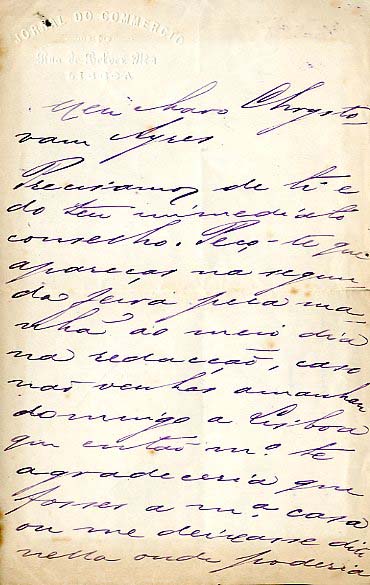 JORNAL DO COMMERCIO
Rua de Belver Nº 1
LISBOA
Meu charo Chrysto-
vam Ayres
Precisamos de ti e
do teu immediato
conselho. Peço-te que
apareças na segun
da feira pela ma-
nhã ao meio dia
na redacção, caso
não venhas amanhan
domingo a Lisboa
que então m.º te
agradeceria que
fosses a m.ª casa
ou me deixasse dito
nella onde poderia